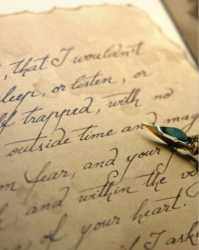 , that I wouldn't
sleep, or listen, or
lf trapped, with no
outside time and mag
m fear, and your
and within the ve
s of your heart.
I ask